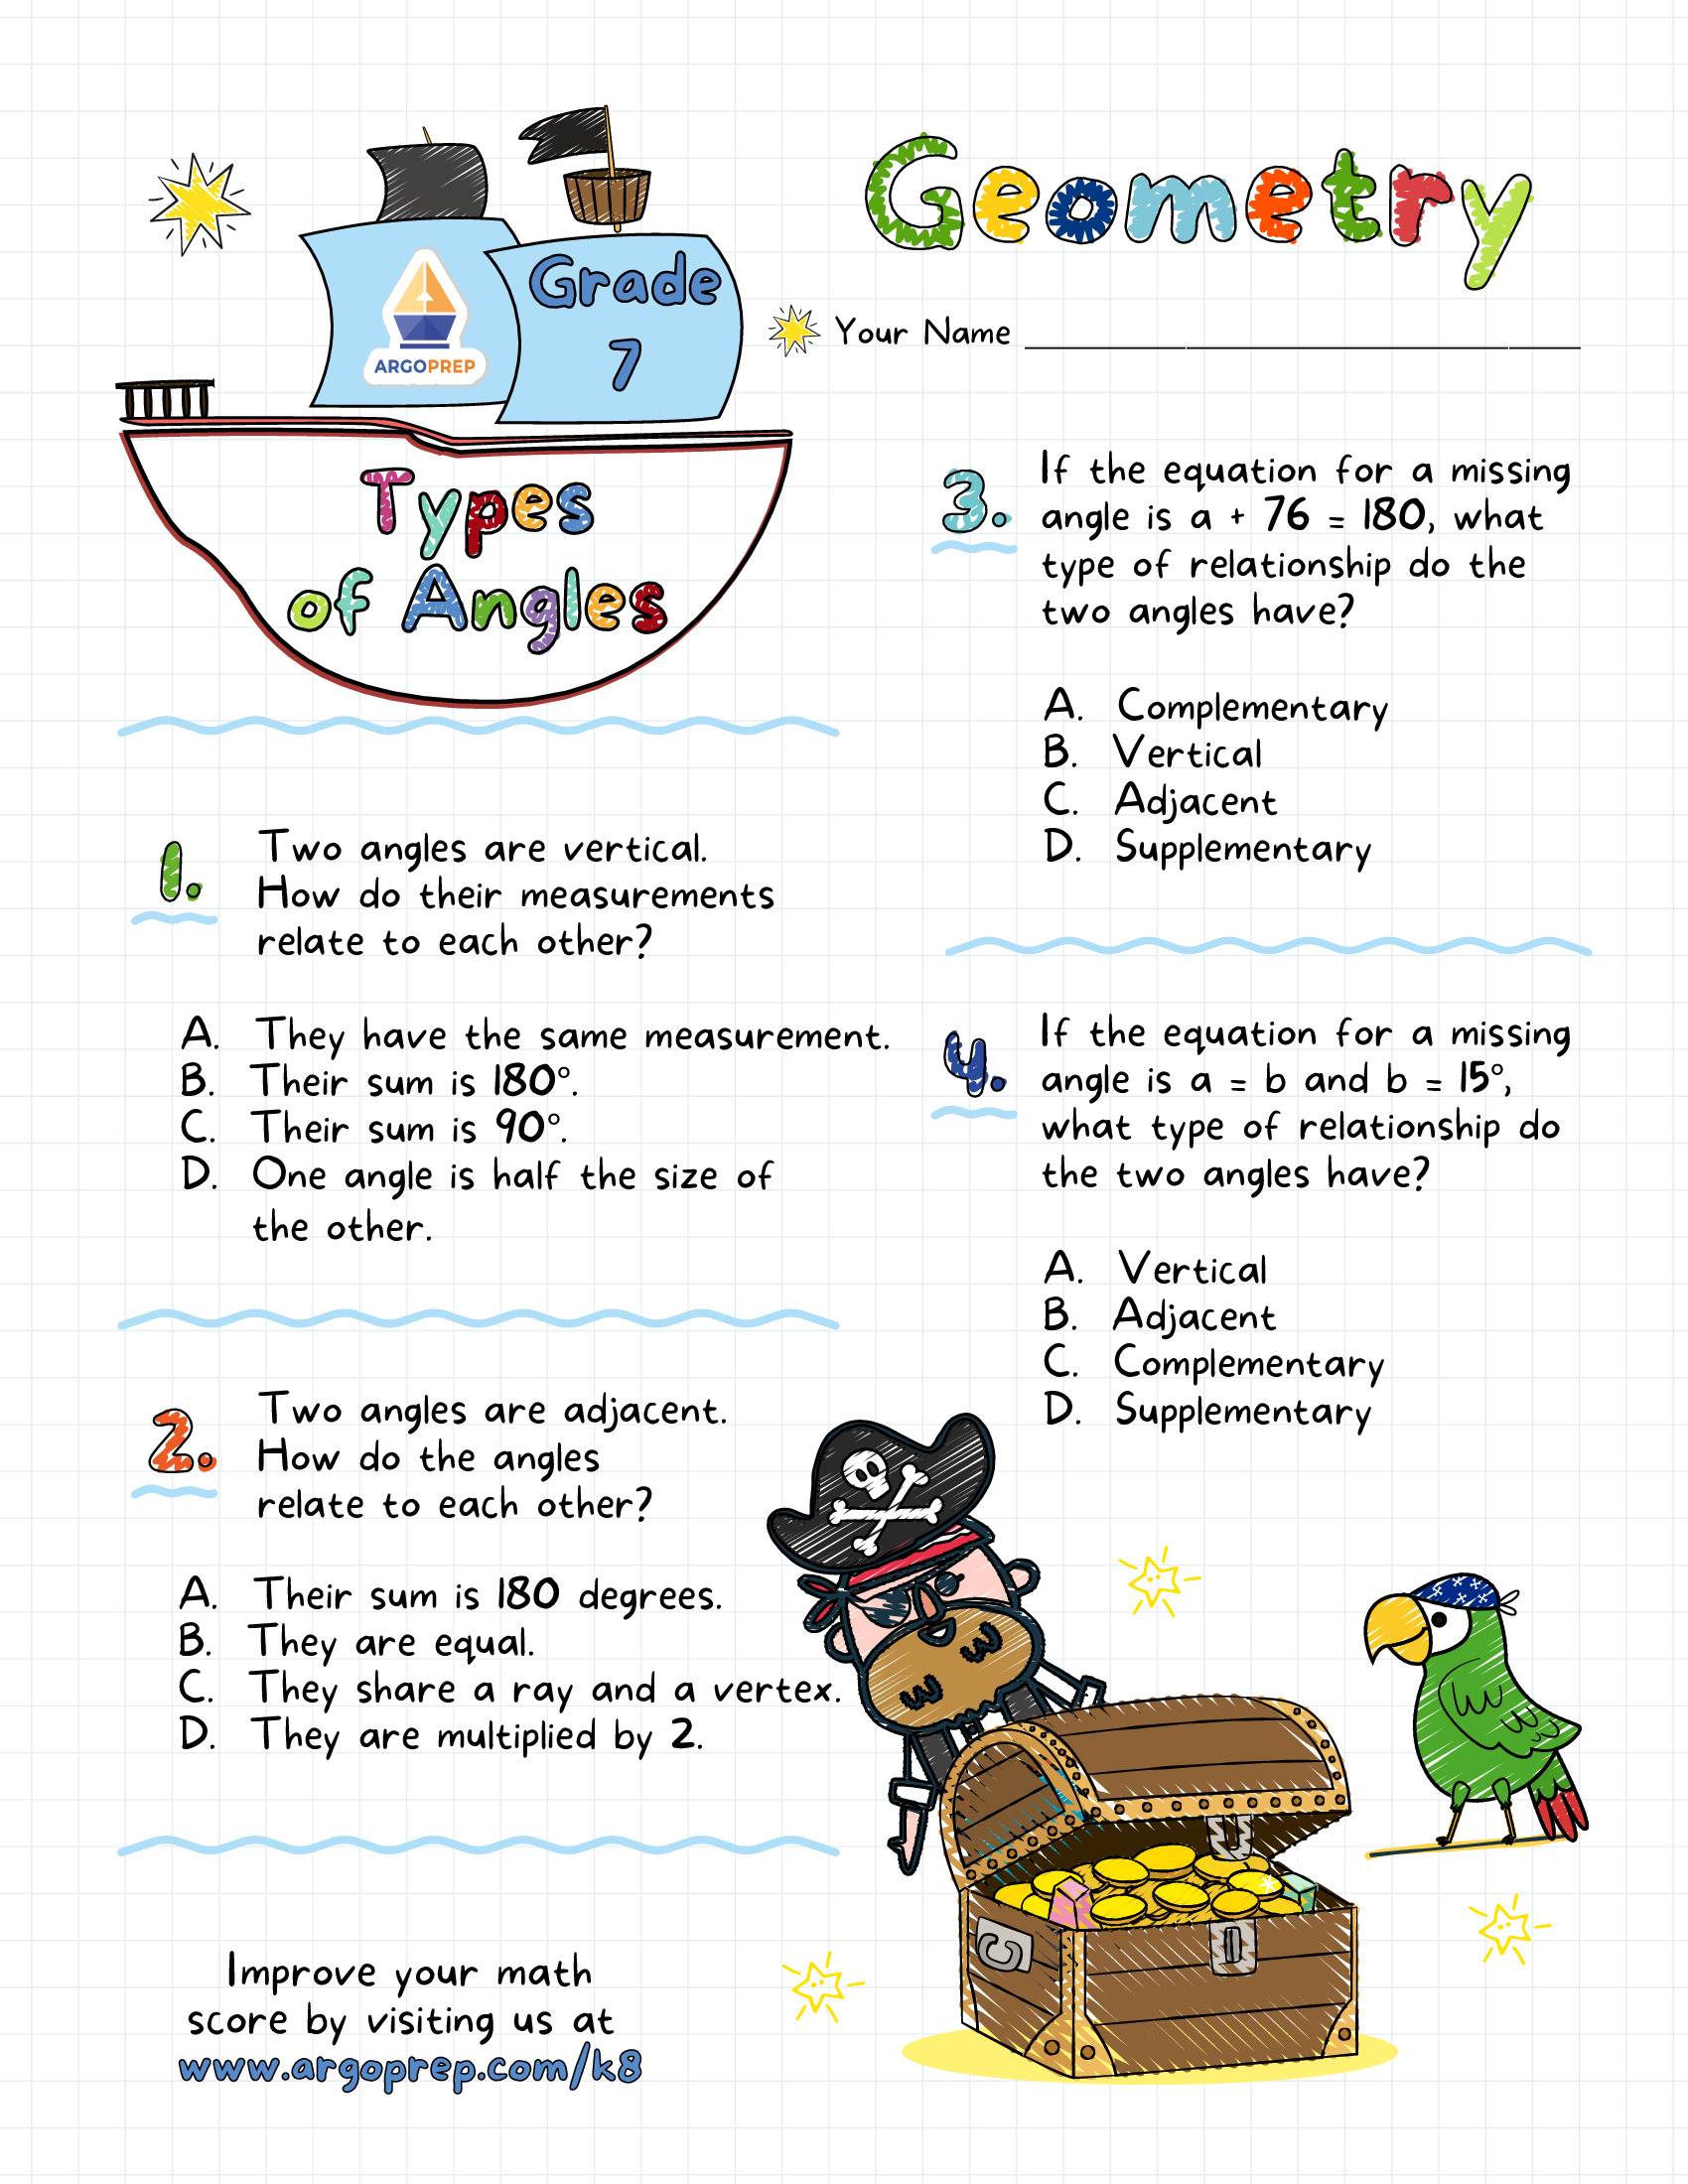 Grade
7
ARGOPREP
Types
of Angles
Geometry
Your Name
1. Two angles are vertical.
How do their measurements
relate to each other?
A. They have the same measurement.
B. Their sum is 180°.
C. Their sum is 90°.
D. One angle is half the size of
the other.
2. Two angles are adjacent.
How do the angles
relate to each other?
A. Their sum is 180 degrees.
B. They are equal.
C. They share a ray and a vertex.
D. They are multiplied by 2.
3. If the equation for a missing
angle is a + 76 = 180, what
type of relationship do the
two angles have?
A. Complementary
B. Vertical
C. Adjacent
D. Supplementary
4. If the equation for a missing
angle is a = b and b = 15°,
what type of relationship do
the two angles have?
A. Vertical
B. Adjacent
C. Complementary
D. Supplementary
Improve your math
score by visiting us at
www.argoprep.com/k8